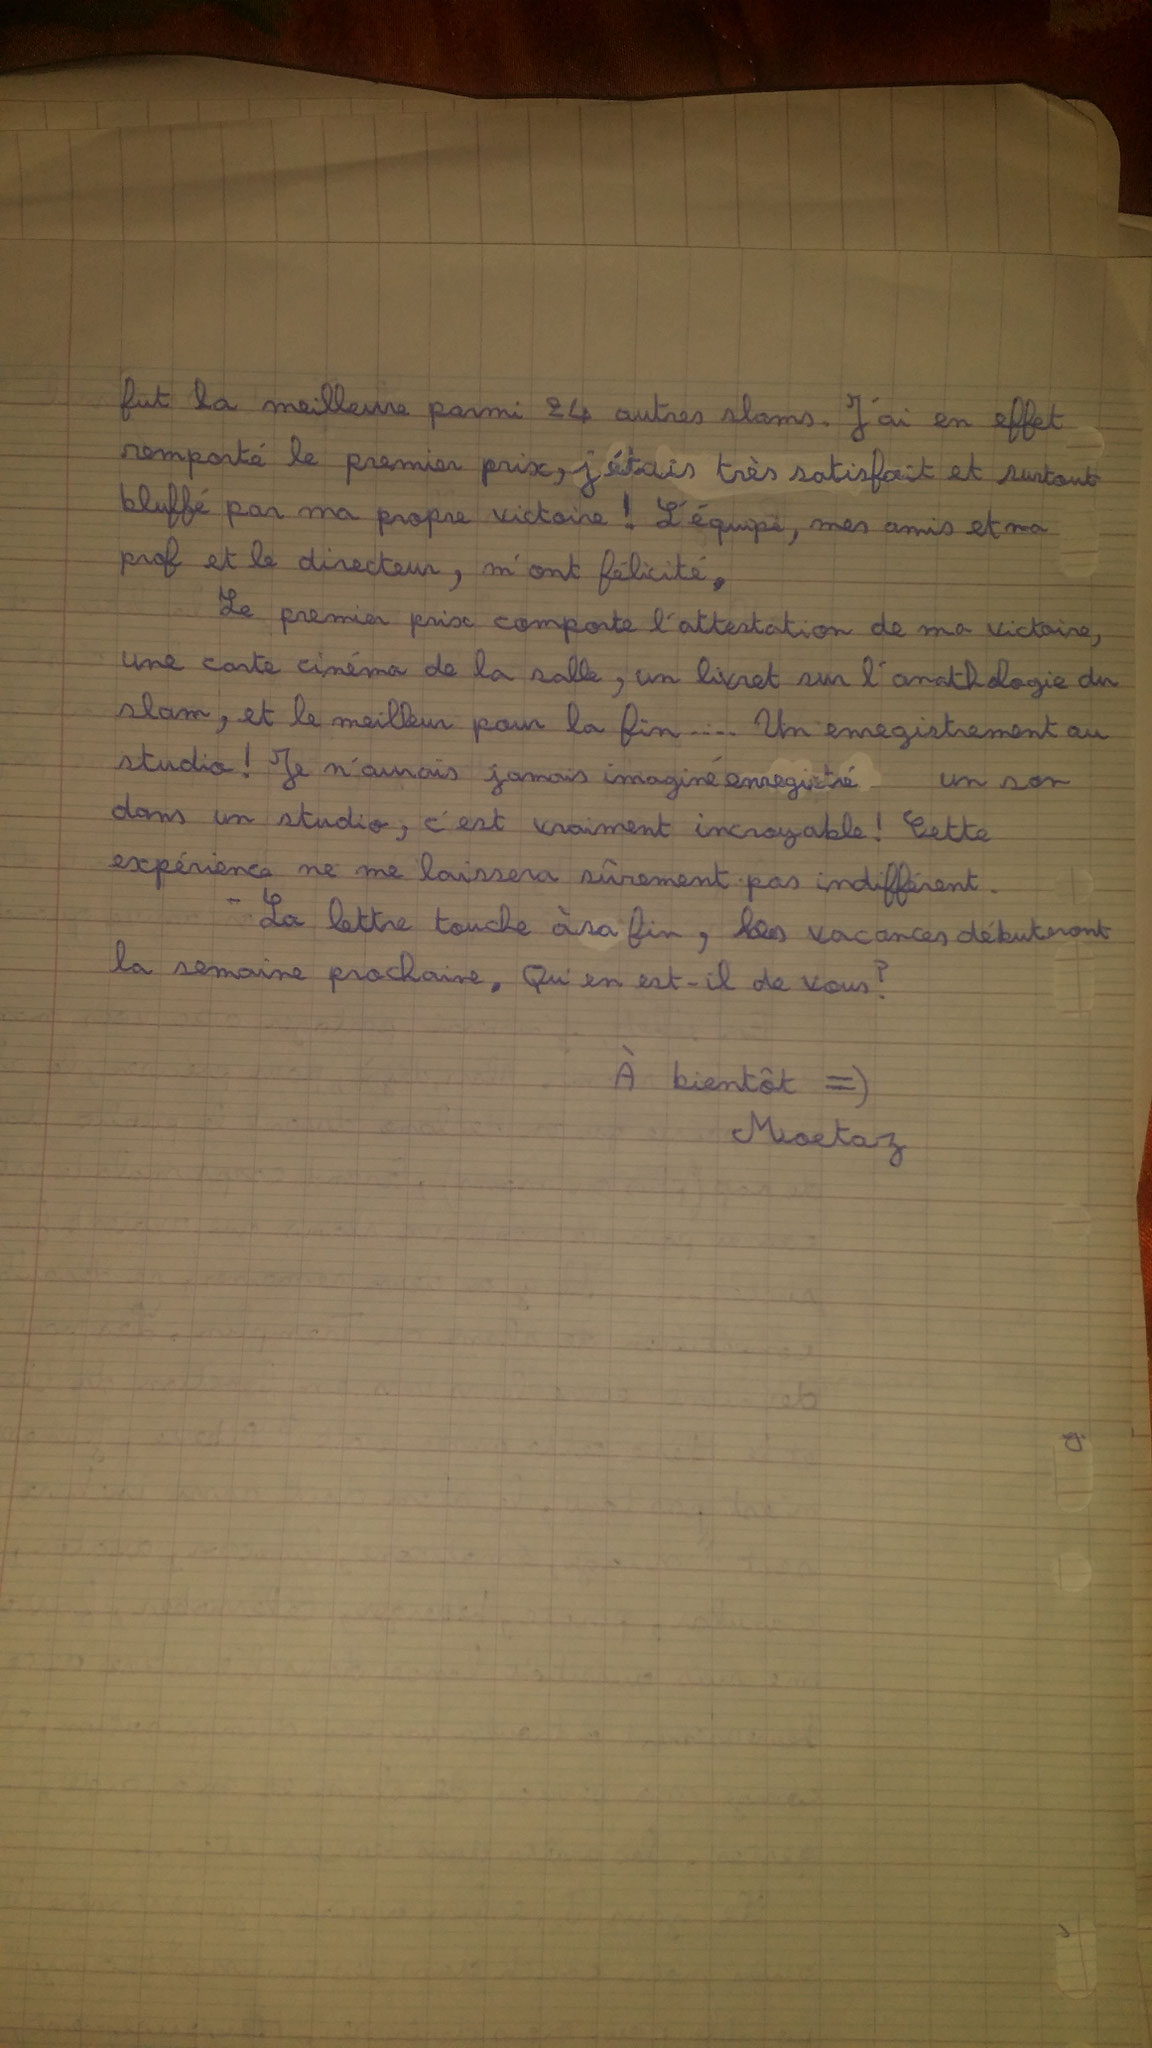 fut la meilleure parmi 24 autres slams. J'ai en effet
remporté le premier prix, j'étais très satisfait et surtout
bluffé par ma propre victoire ! L'équipe, mes amis et ma
prof et le directeur, m'ont félicité.
Le premier prix comporte l'attestation de ma victoire,
une carte cinéma de la salle, un livret sur l'anathologie du
slam, et le meilleur pour la fin .... Un enregistrement au
studio ! Je n'aurais jamais imaginé enregistré un son
dans un studio, c'est vraiment incroyable ! Cette
expérience ne me laissera sûrement pas indifférent.
- La lettre touche à sa fin, les vacances débuteront
la semaine prochaine. Qu'en est-il de vous ?
À bientôt =)
Moetaz